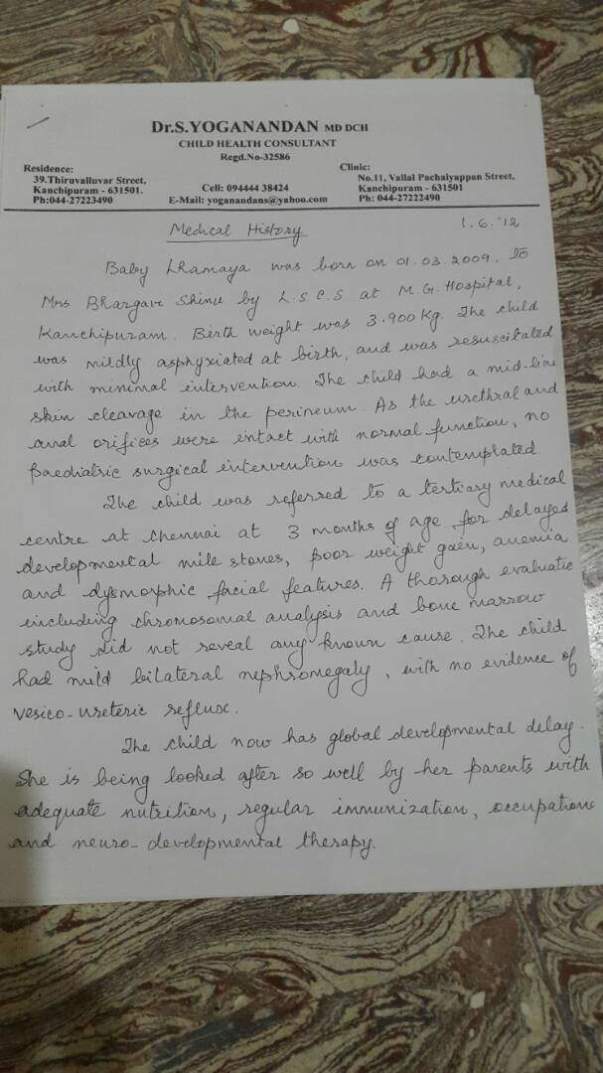 Dr.S.YOGANANDAN MD DCH
CHILD HEALTH CONSULTANT
Regd.No-32586
Residence:
39.Thiruvalluvar Street,
Kanchipuram - 631501.
Ph:044-27223490
Cell: 094444 38424
E-Mail: yoganandans@yahoo.com
Clinic:
No.11, Vallal Pachaiyappan Street,
Kanchipuram - 631501
Ph: 044-27222490
Medical History
1.6.'12
Baby was born on 01.03.2009. to
Mrs Bhargavi Shinu by L.S.C.S at M.G. Hospital,
Kanchipuram. Birth weight was 3.900 Kg. The child
was mildly asphyxiated at birth, and was resuscitated
with minimal intervention. The child had a mid-line
skin cleavage in the perineum. As the urethral and
anal orifices were intact with normal function, no
paediatric surgical intervention was contemplated
The child was referred to a tertiary medical
centre at Chennai at 3 months of age for delayed
developmental mile stones, poor weight gain, anemia
and dysmorphic facial features. A thorough evaluatio
including chromosomal analysis and bone marrow
study did not reveal any known cause. The child
had mild bilateral nephromegaly, with no evidence of
vesico-ureteric reflux.
The child now has global developmental delay.
She is being looked after so well by her parents with
adequate nutrition, regular immunization, occupationa
and neuro-developmental therapy.